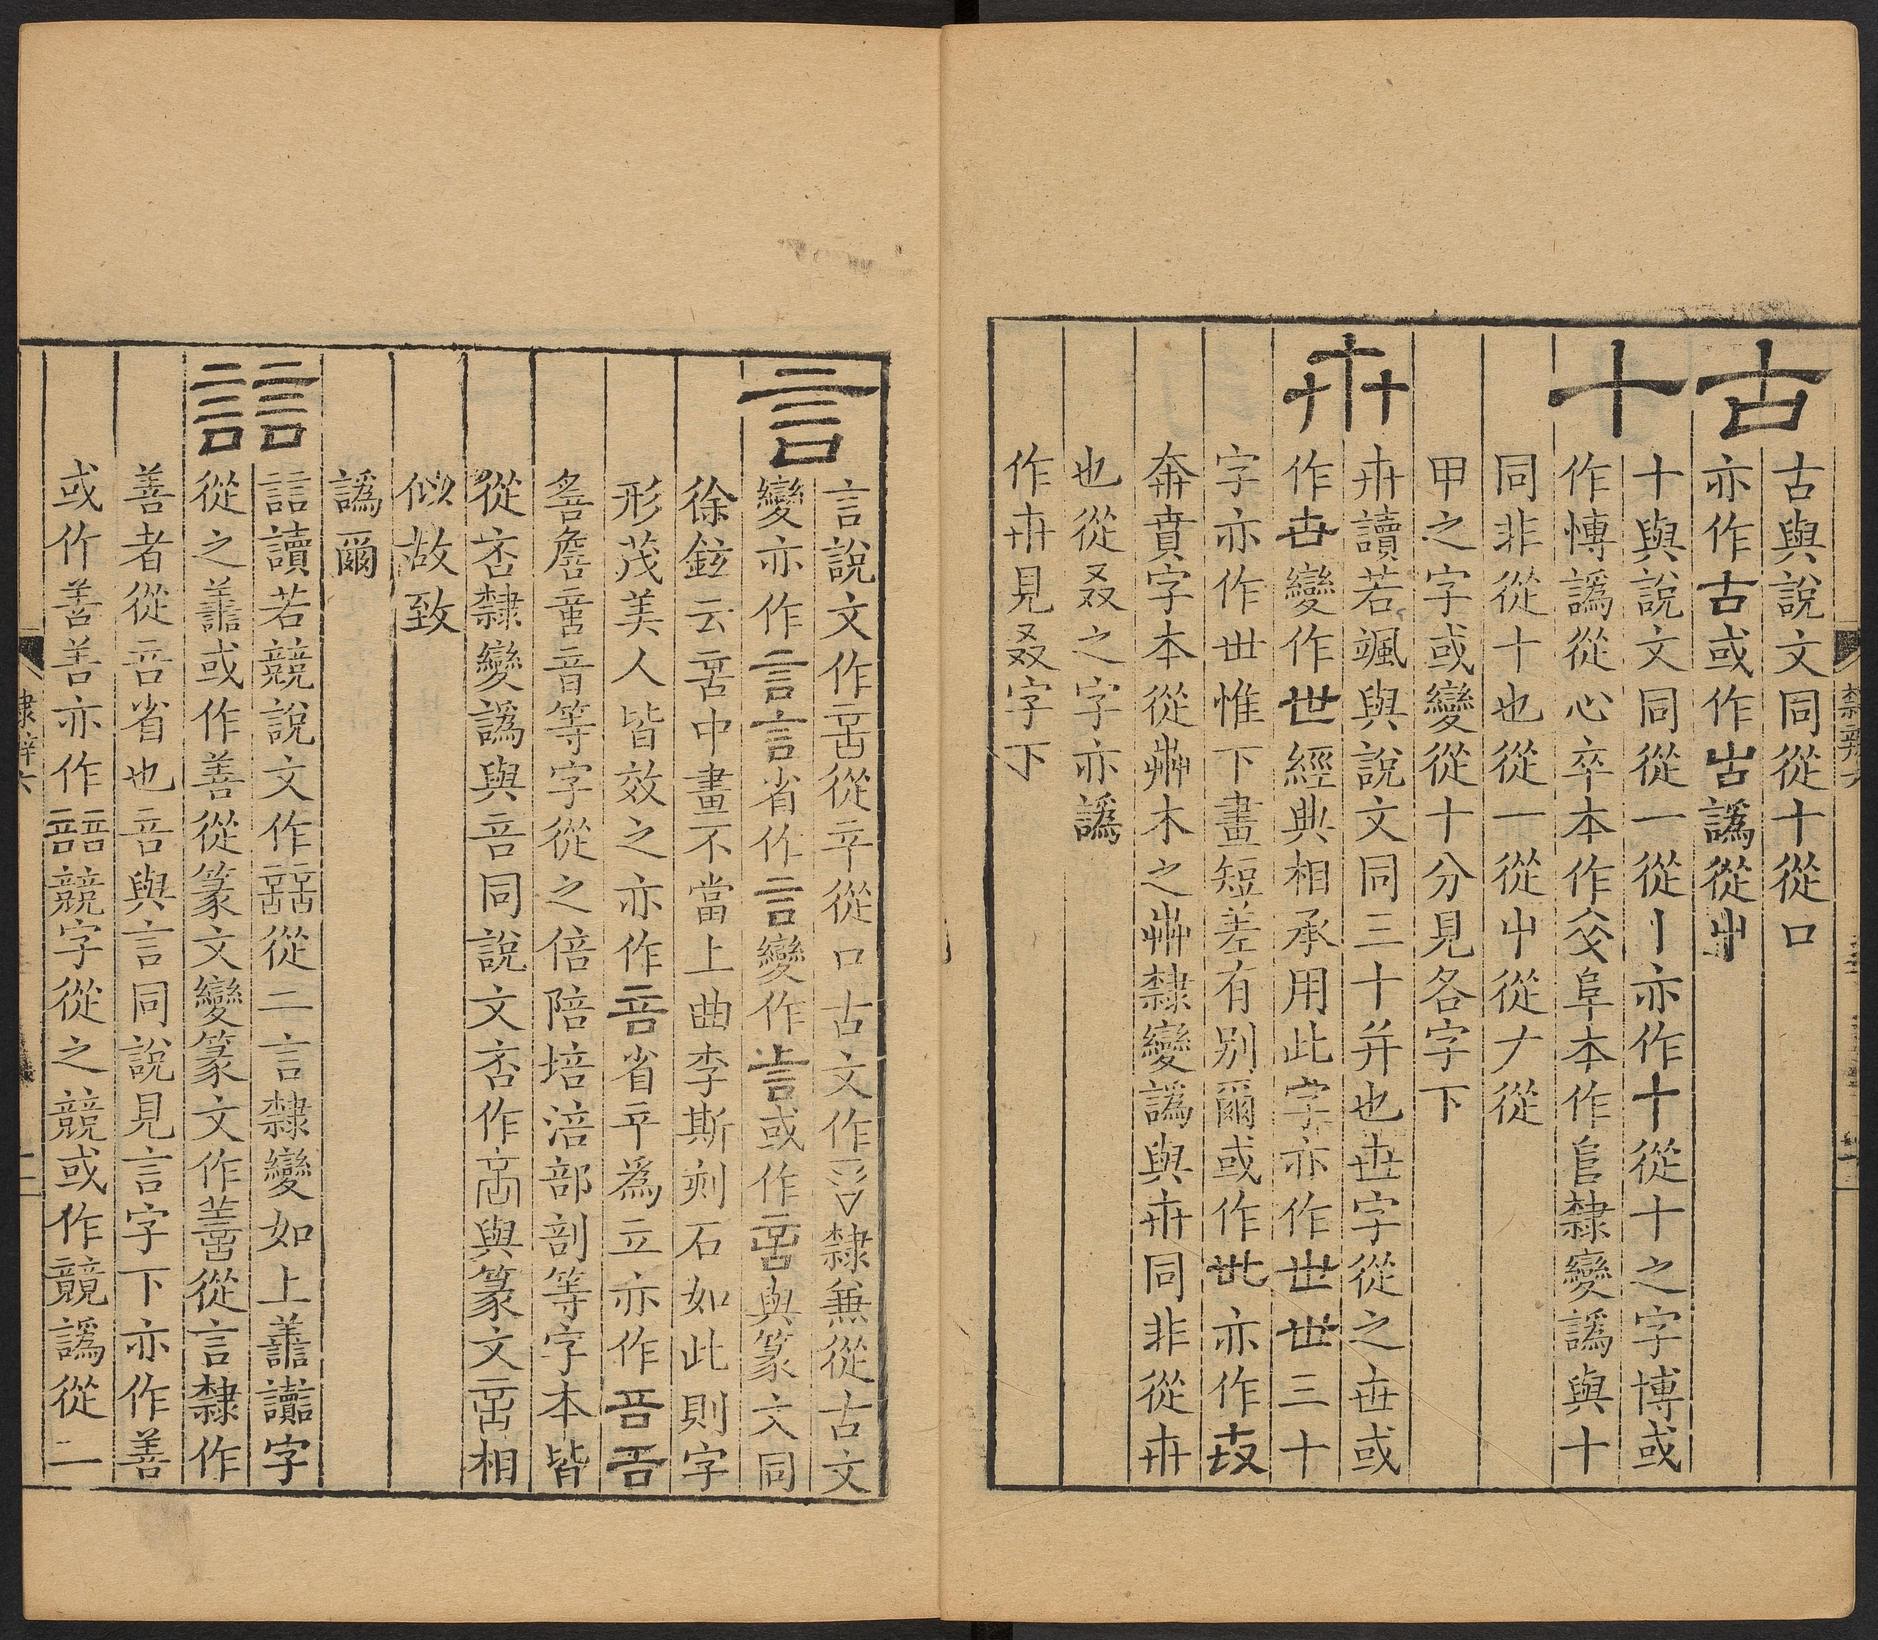 古
古與說文同從十從口
亦作古或作𠖠譌從屮
十
十與說文同從一從丨亦作十從十之字博或
作愽譌從心卒本作㚇阜本作𨸏隸變譌與十
同非從十也從一從屮從𠂇從
甲之字或變從十分見各字下
卅
卅讀若颯與說文同三十并也丗字從之丗或
作卋變作世經典相承用此字亦作世丗三十
字亦作丗惟下畫短差有别爾或作亦作
奔賁字本從艸木之艸隸變譌與卅同非從卅
也從叒之字亦譌
作卅見叒字下
言
言說文作䇂從口古文作隸兼從古文
變亦作言言省作言變作或作與篆文同
徐鉉云中畫不當上曲李斯刻石如此則字
形茂美人皆效之亦作省䇂為立亦作
詹音等字從之倍陪培涪部剖等字本皆
從否隸變譌與音同說文否作與篆文相
似故致
譌爾
誩
誩讀若競說文作從二言隸變如上譱讟字
從之譱或作善從篆文變篆文作從言隸作
善者從省也與言同說見言字下亦作善
或作善善亦作競字從之競或作竸譌從二